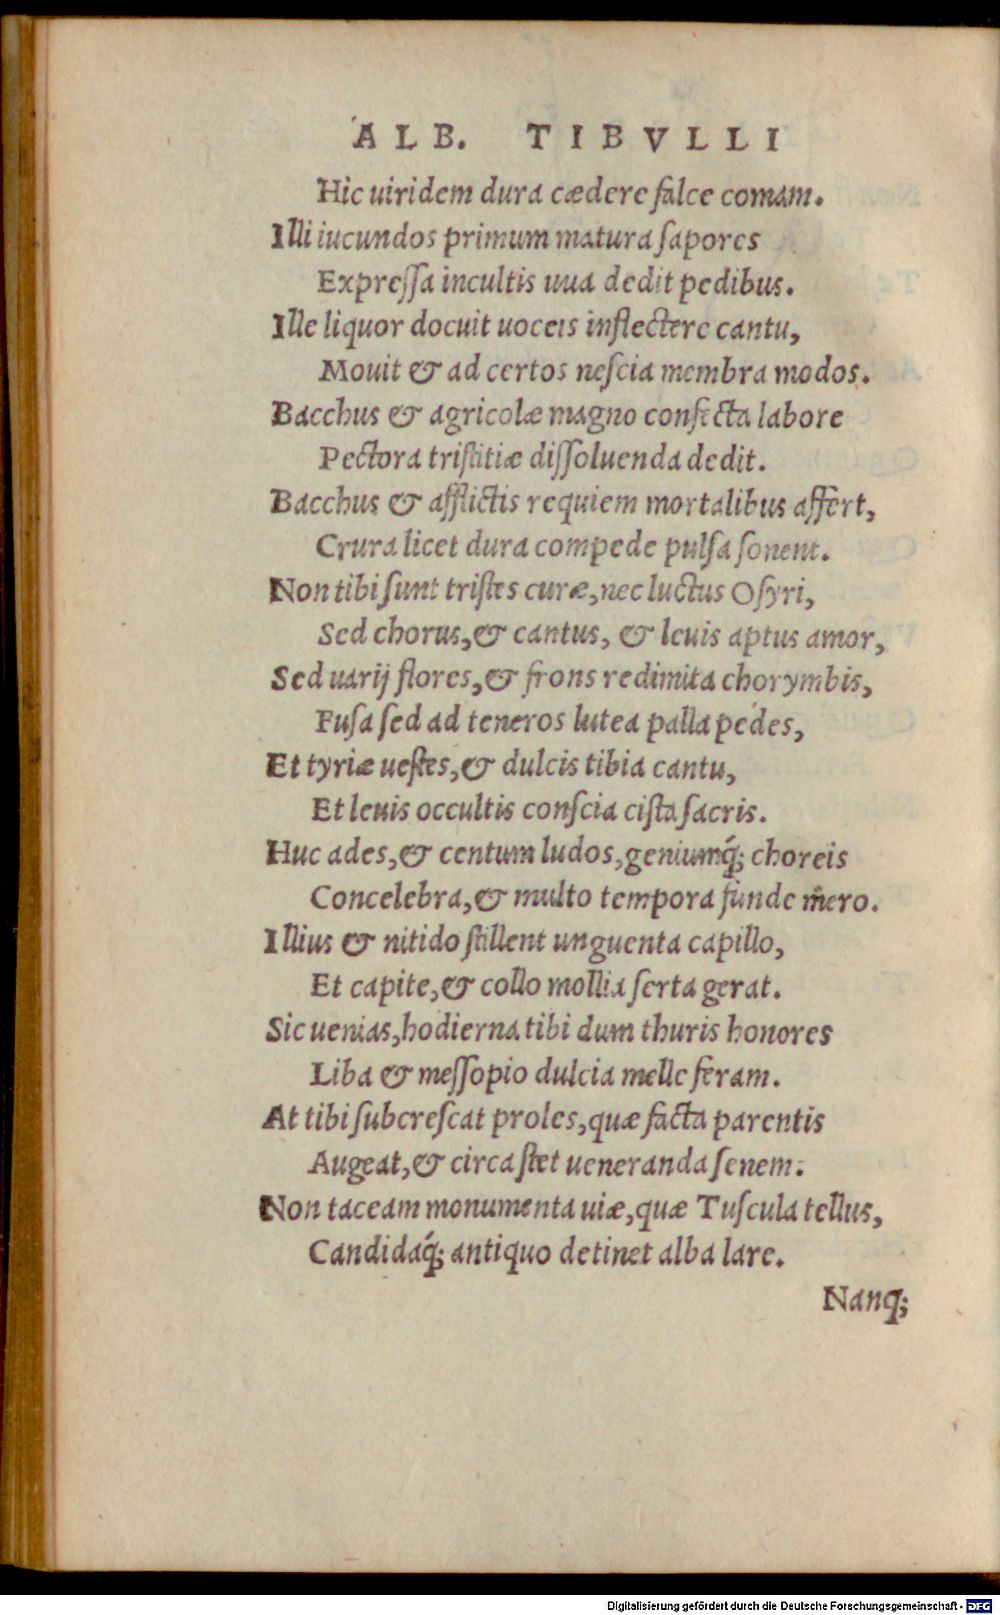 ALB. TIBVLLI
Hic uiridem dura cædere falce comam.
Illi iucundos primum matura sapores
Expressa incultis uua dedit pedibus.
Ille liquor docuit uoceis inflectere cantu,
Mouit & ad certos nescia membra modos.
Bacchus & agricolæ magno confecta labore
Pectora tristitiæ dissoluenda dedit.
Bacchus & afflictis requiem mortalibus affert,
Crura licet dura compede pulsa sonent.
Non tibi sunt tristes curæ, nec luctus Osyri,
Sed chorus, & cantus, & leuis aptus amor,
Sed uarij flores, & frons redimita chorymbis,
Fusa sed ad teneros lutea palla pedes,
Et tyriæ uestes, & dulcis tibia cantu,
Et leuis occultis conscia cista sacris.
Huc ades, & centum ludos, geniumq́; choreis
Concelebra, & multo tempora funde mero.
Illius & nitido stillent unguenta capillo,
Et capite, & collo mollia serta gerat.
Sic uenias, hodierna tibi dum thuris honores
Liba & messopio dulcia melle feram.
At tibi subcrescat proles, quæ facta parentis
Augeat, & circa stet ueneranda senem.
Non taceam monumenta uiæ, quæ Tuscula tellus,
Candidaq́; antiquo detinet alba lare.
Nanq;
Digitalisierung gefördert durch die Deutsche Forschungsgemeinschaft - DFG